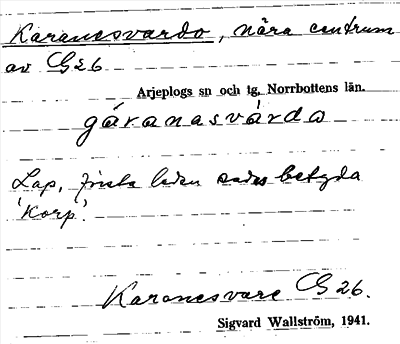 Karanesvardo, nära centrum
av G26
Arjeplogs sn och tg, Norrbottens län.
gáranasvárdo
Lap, första leden sades betyda
'Korp'.
Karanesvare G 26.
Sigvard Wallström, 1941.